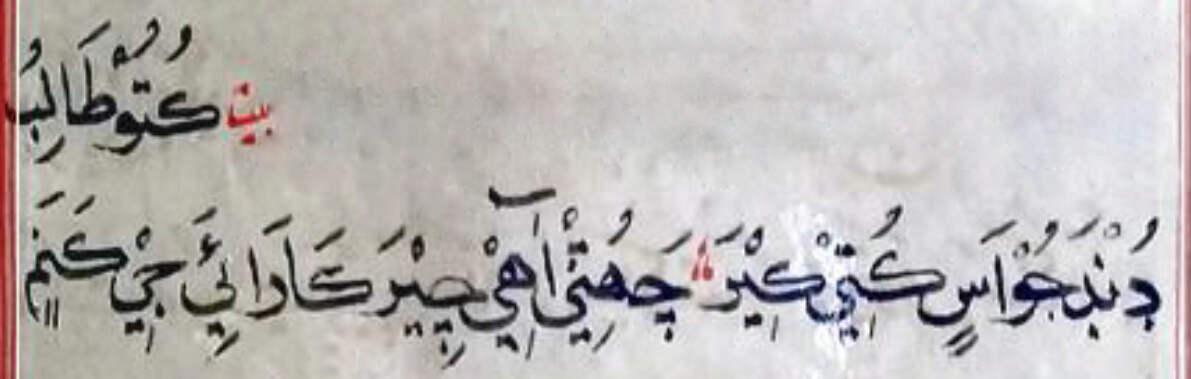 بيت كُتُوْ طَالِبُ
دُنْدَ جُوْ اَسٍ كُتِيْ كِيْرَ ؞ چَهُتِيْ آهِيْ چِيْرَ كَارَائِيَ جِيْ كَنِمَ